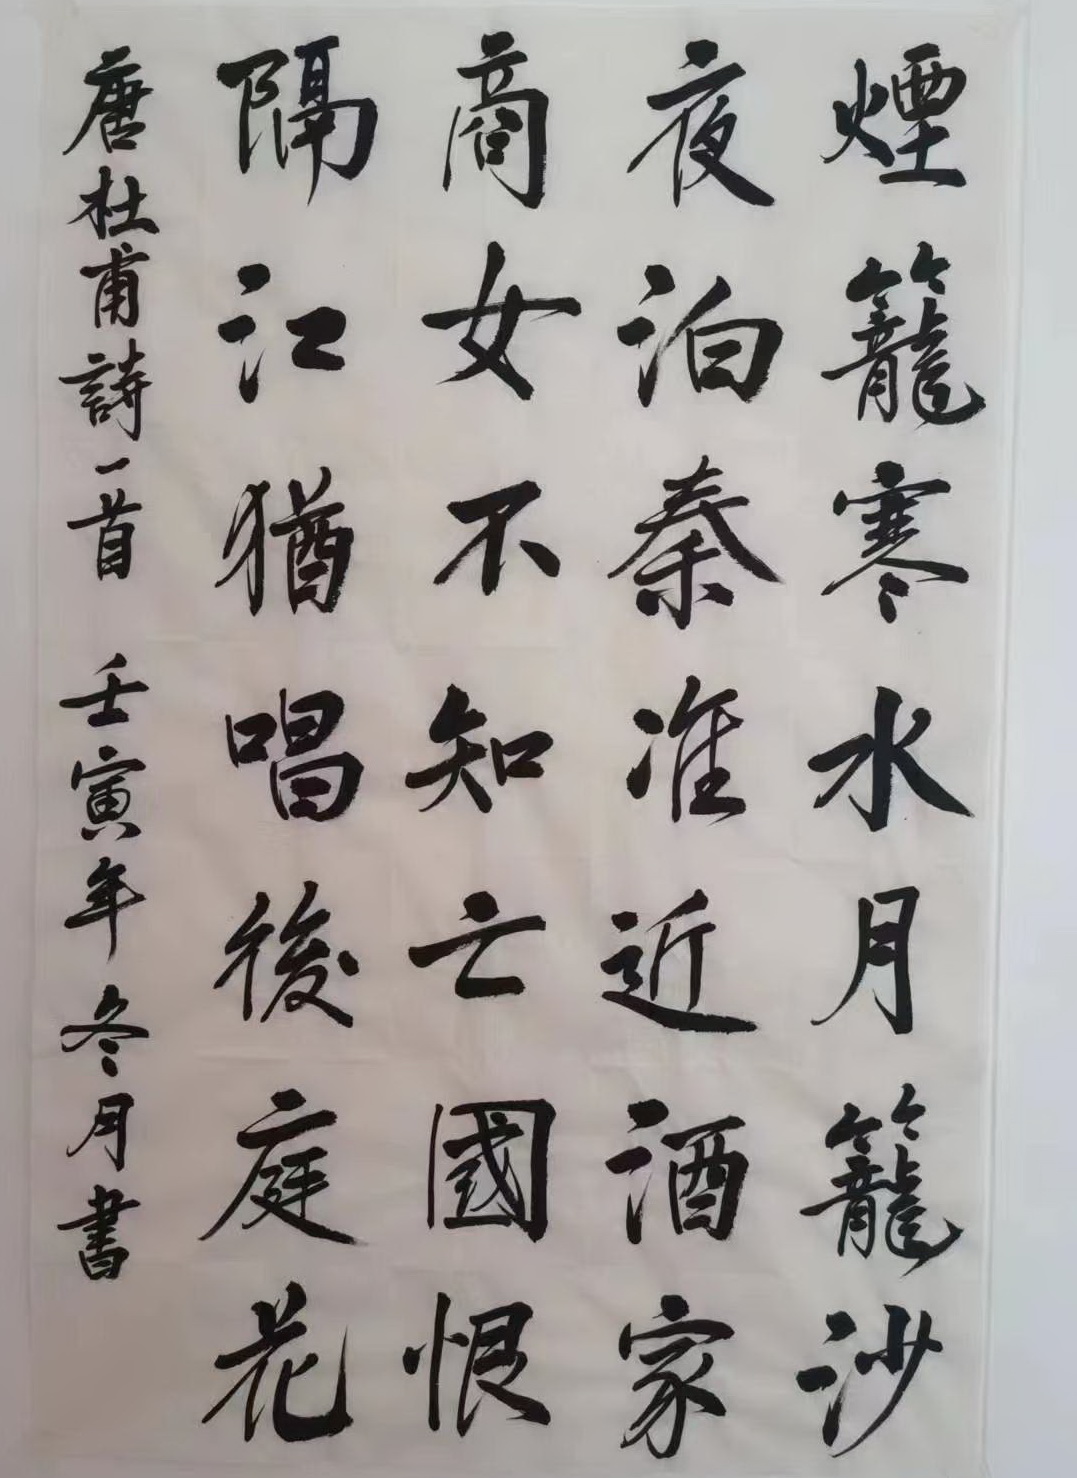 煙籠寒水月籠沙
夜泊秦准近酒家
商女不知亡國恨
隔江猶唱後庭花
唐杜甫詩一首 壬寅年冬月書